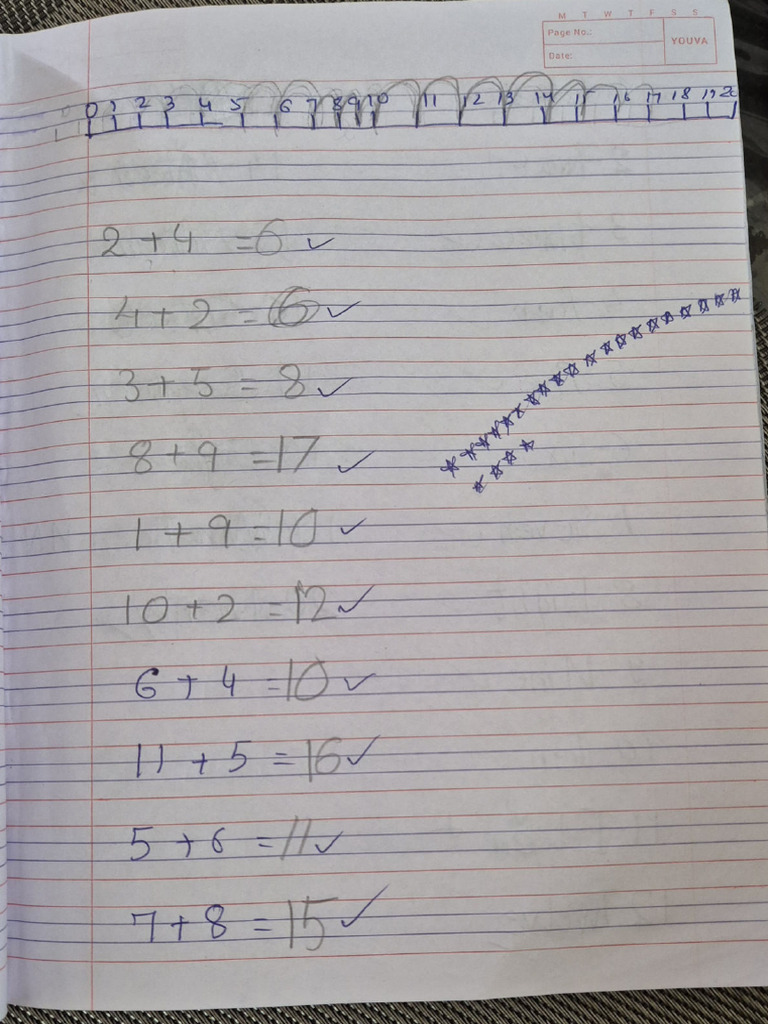 M T W T F S S
Page No.:
YOUVA
Date:
0 1 2 3 4 5 6 7 8 9 10 11 12 13 14 15 16 17 18 19 20
2 + 4 = 6 ✓
4 + 2 = 6 ✓
3 + 5 = 8 ✓
8 + 9 = 17 ✓
1 + 9 = 10 ✓
10 + 2 = 12 ✓
6 + 4 = 10 ✓
11 + 5 = 16 ✓
5 + 6 = 11 ✓
7 + 8 = 15 ✓